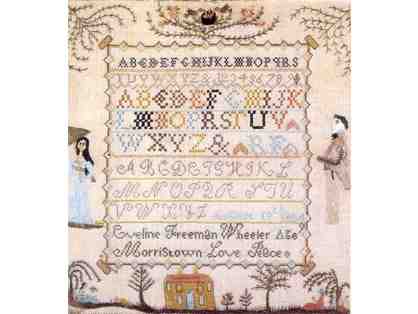 ABCDEFGHIJKLMNOPQRS
TUVWXYZ&123456789
ABCDEFGHIJK
LMNOPQRSTUV
WXYZ&
ABCDEFGHIKL
MNOPQRSTU
VWXYZ
Eveline Freeman Wheeler
Morristown Love Peace